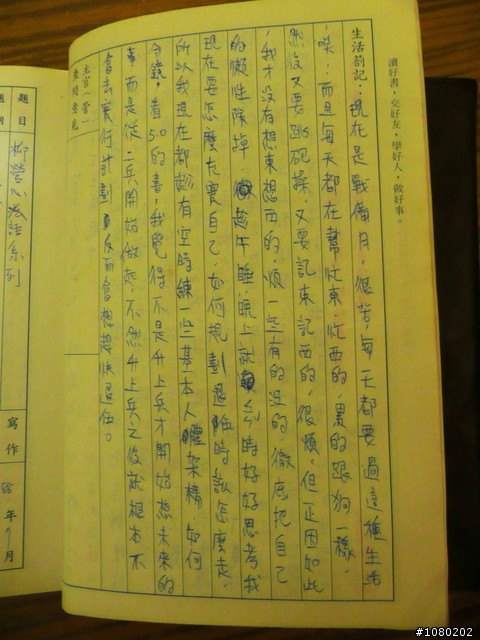 讀好書,交好友,學好人,做好事。
生活劄記:現在是戰備月,很苦,每天都要過這種生活
唉!而且每天都在幫忙東忙西的,累的跟狗一樣,
然後又要跳砲操,又要記東記西的,很煩,但正因如此
,我才沒有想東想西的,煩一些有的沒的,徹底把自己
的懶性除掉,趁午睡,晚上就寢時好好思考我
現在要怎麼充實自己,如何規劃退伍時該怎麼走,
所以我現在都趁有空時練一些基本人體架構,如何
分鏡,看5.0的書,我覺得不是升上兵才開始想未來的
事而是從二兵開始做起,不然升上兵之後就根本不
會去實行計劃反而會想趕快退伍。
查閱意見
題目
柳營心法話系列
寫作
88年7月
#1080202